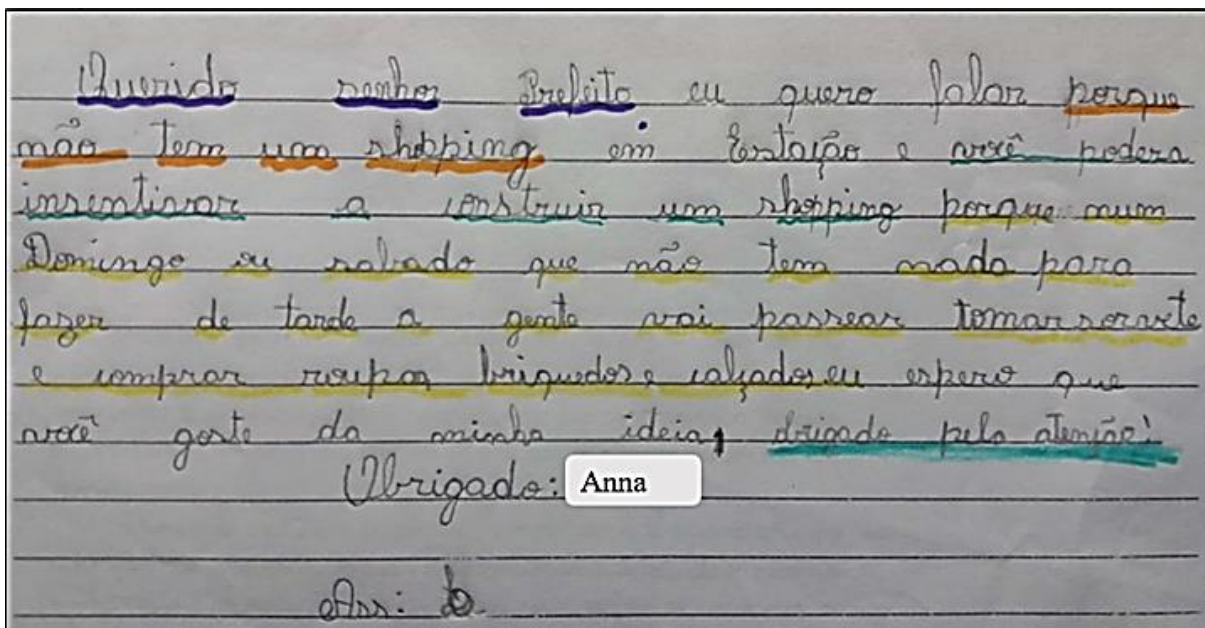 Querido senhor Prefeito eu quero falar porque
não tem um shopping em Estação e você podera
insentivar a construir um shopping porque num
Domingo ou sabado que não tem nada para
fazer de tarde a gente vai passear tomar sorvete
e comprar roupas briquedos e calçados eu espero que
você goste da minha ideia, obrigado pela atenção!
Obrigado: Anna
Ass: